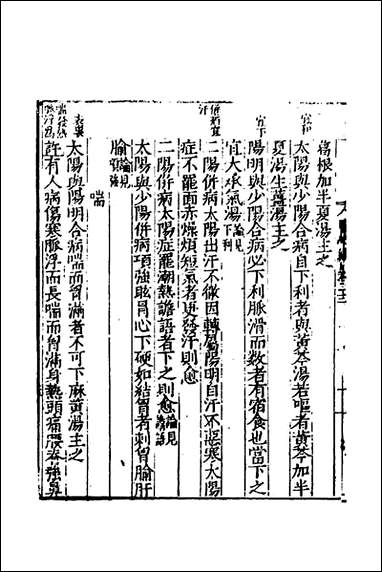 葛根加半夏湯主之
宜和
太陽與少陽合病自下利者與黃芩湯若嘔者黃芩加半
夏湯生薑湯主之
宜下
陽明與少陽合病必下利脉滑而数者有宿食也當下之
宜大承氣湯論見下利
汗
二陽併病太陽出汗不徹因轉屬陽明自汗不惡寒太陽
症不罷面赤煩燥短氣者更發汗則愈
二陽併病太陽症罷潮熱譫語者下之則愈論見譫語
太陽與少陽併病項強眩冒心下硬如結胷者刺肓腧肝
腧論見項強
喘
表裏
太陽與陽明合病喘而胷滿者不可下麻黃湯主之
許有人病傷寒脉浮而長喘而胷滿身熱頭痛腰脊強鼻